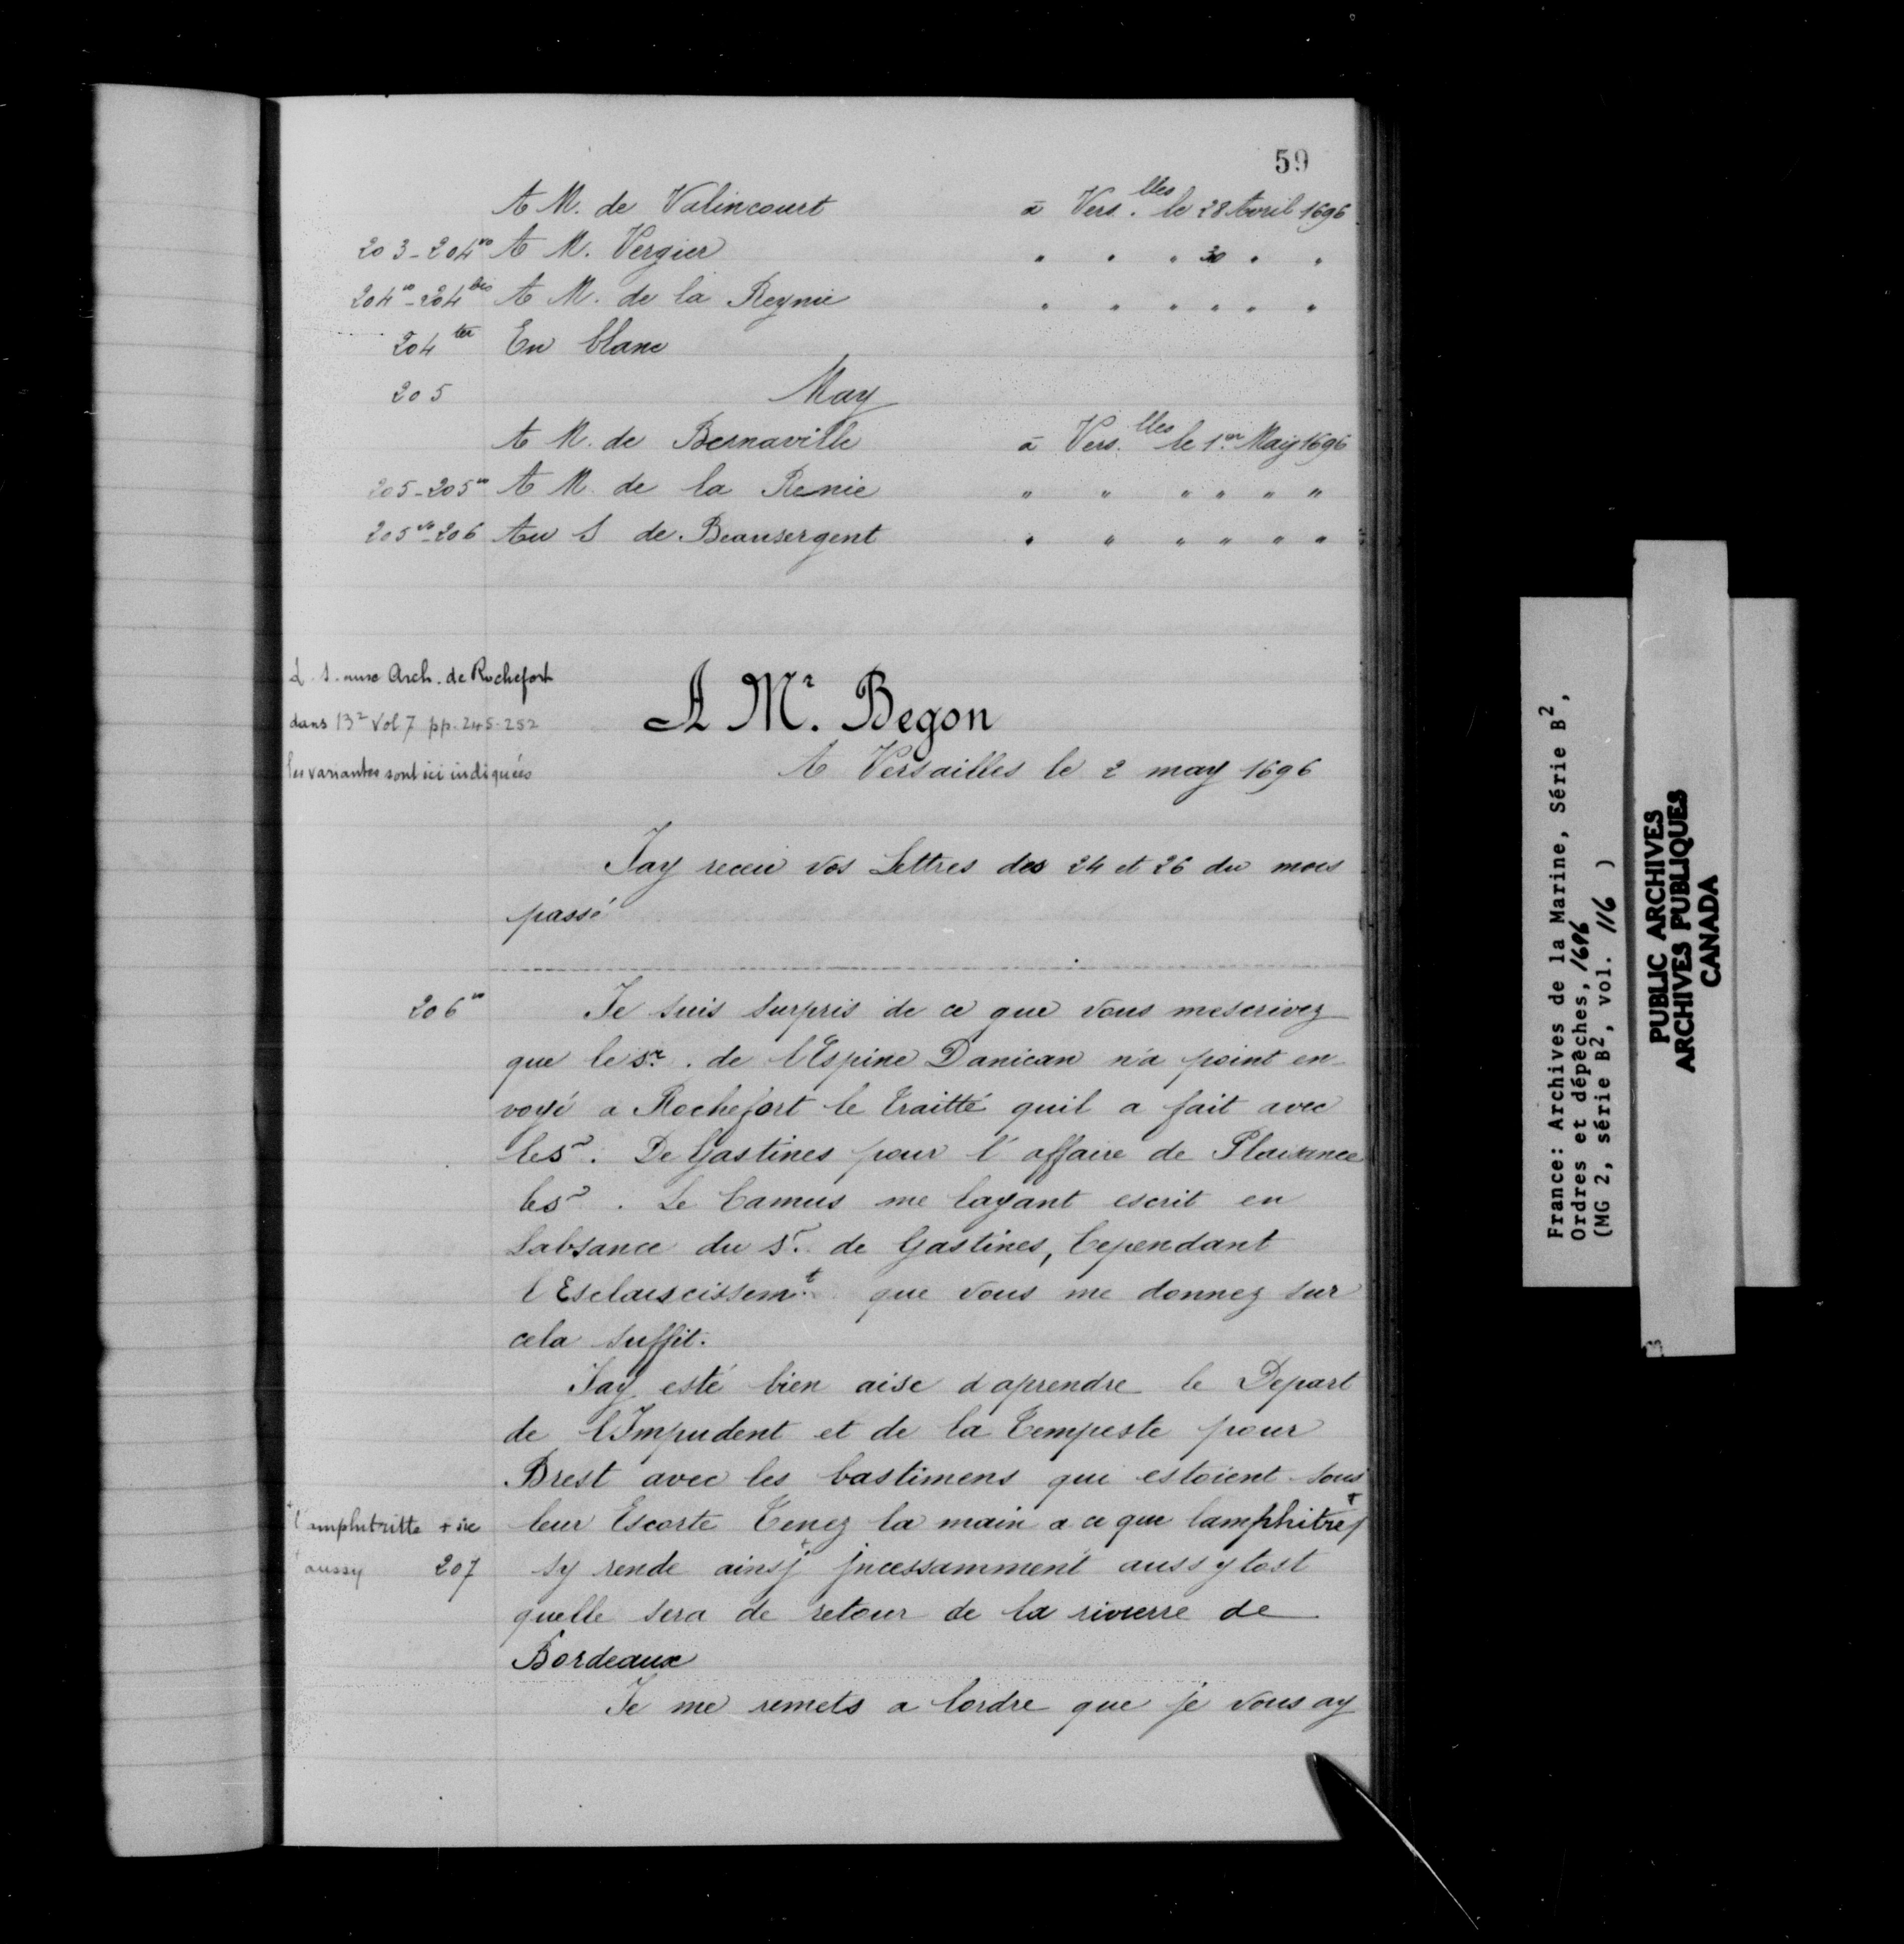 59
A M. de Valincourt à Vers.lles le 28 Avril 1696
203-204vo A M. Vergier " " " 30 " "
204vo-204bis A M. de la Reynie " " " " " "
204ter En blanc
205 May
A M. de Bernaville à Vers.lles le 1er May 1696
205-205vo A M. de la Renie " " " " " "
205vo-206 Au S de Beausergent " " " " " "
L. S. aux Arch. de Rochefort
dans B2 Vol 7 pp. 245-252
les variantes sont ici indiquées
A Mr. Begon
A Versailles le 2 may 1696
Jay receu vos Lettres des 24 et 26 du mois
passé
206vo Je suis surpris de ce que vous mescrivez
que le sr. de lEspine Danican n'a point en-
voyé a Rochefort le traitté quil a fait avec
le sr. De Gastines pour l'affaire de Plaisance
le sr. Le Camus me layant escrit en
labsance du sr. de Gastines, Cependant
l'Esclaircissemt. que vous me donnez sur
cela suffit.
Jay esté bien aise daprendre le Depart
de lImpudent et de la Tempeste pour
Brest avec les bastimens qui estoient sous
l'amphitritte + sic leur Escorte Tenez la main a ce que lamphitre +
+ aussy 207 sy rende ainsj + jncessamment aussytost
quelle sera de retour de la rivierre de
Bordeaux
Je me remets a lordre que je vous ay
France: Archives de la Marine, Série B2,
Ordres et dépêches, 1696
(MG 2, série B2, vol. 116 )
PUBLIC ARCHIVES
ARCHIVES PUBLIQUES
CANADA